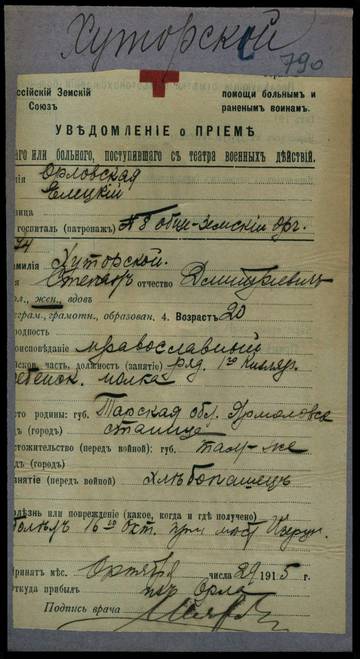 Хуторской
790
ссійскій Земскій
Союзъ
помощи больнымъ и
раненымъ воинамъ.
УВѢДОМЛЕНІЕ о ПРІЕМѢ
аго или больного, поступившаго съ театра военныхъ дѣйствій.
Орловская
Елецкій
госпиталь (патронажъ) № 8 общ-Земскій орг.
милія Хуторской.
Степанъ отчество Дмитріевичъ
жен., вдовъ
грам., грамотн., образован. 4. Возрастъ 20
родность
роисповѣданіе православный
часть, должность (занятіе) ряд. 1го
полка
сто родины: губ. Терская обл.
(городъ) станица
стожительство (передъ войной): губ. там-же
(городъ)
нятіе (передъ войной) хлѣбопашецъ
лѣзнь или поврежденіе (какое, когда и гдѣ получено)
16го окт. при мѣст
ринятъ мѣс. Октября числа 29 1915 г.
ткуда прибылъ изъ Орла
Подпись врача